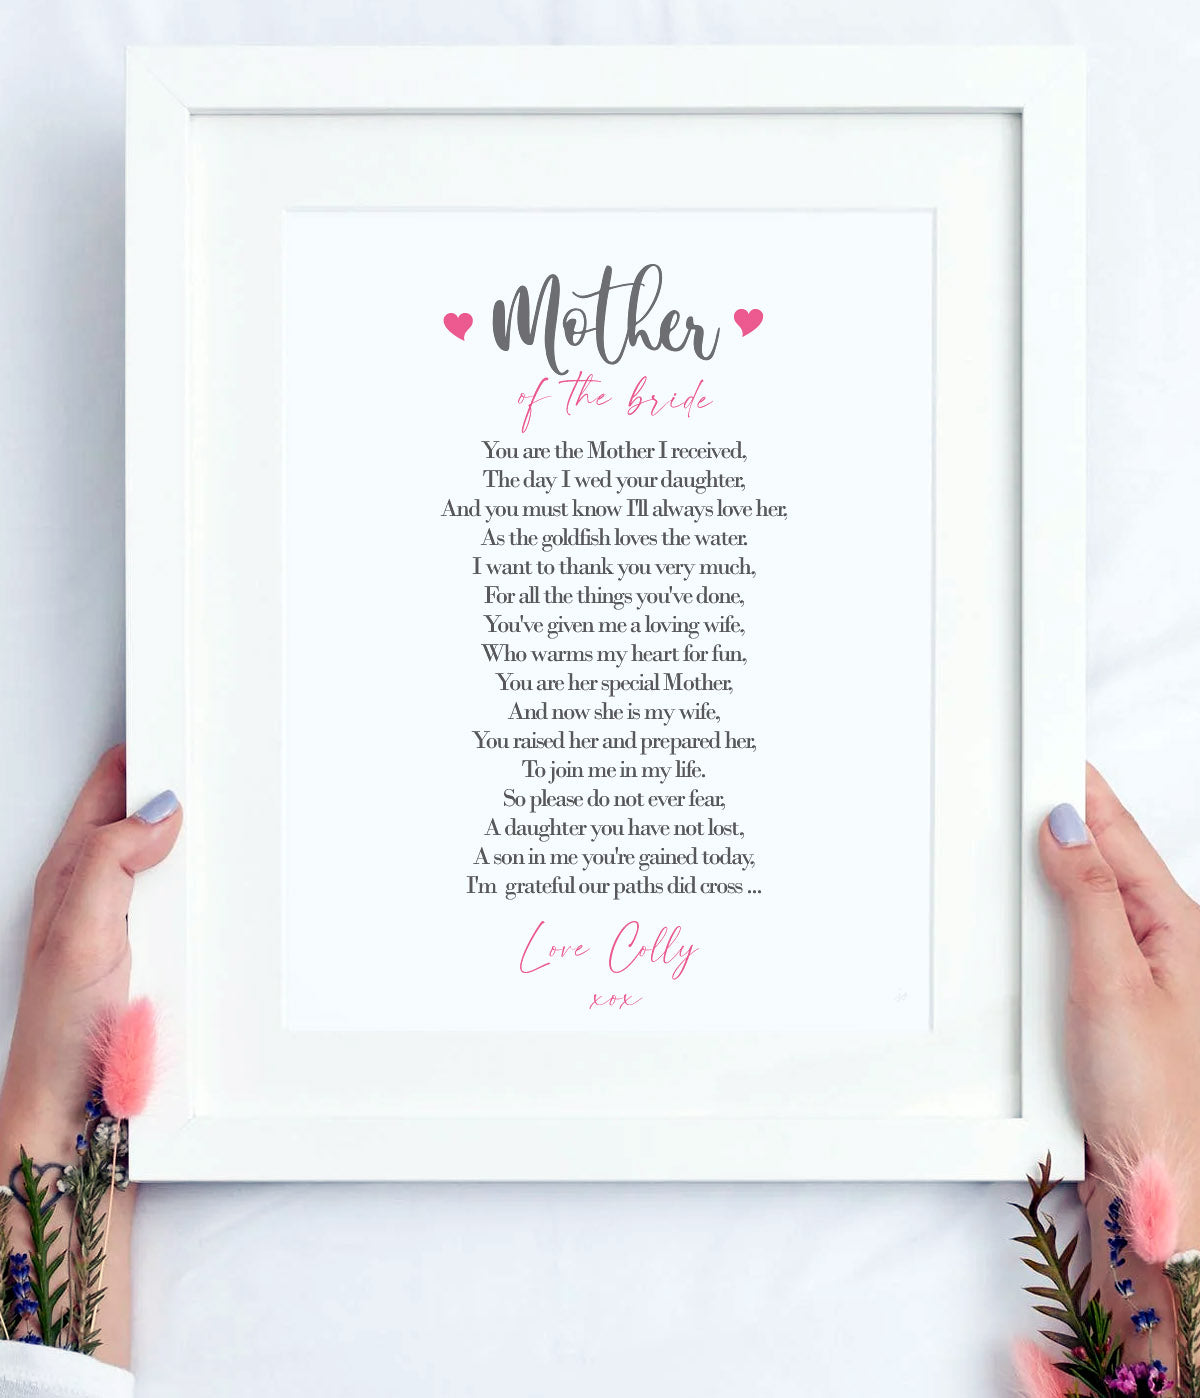 Mother
of the bride
You are the Mother I received,
The day I wed your daughter,
And you must know I'll always love her,
As the goldfish loves the water.
I want to thank you very much,
For all the things you've done,
You've given me a loving wife,
Who warms my heart for fun,
You are her special Mother,
And now she is my wife,
You raised her and prepared her,
To join me in my life.
So please do not ever fear,
A daughter you have not lost,
A son in me you're gained today,
I'm grateful our paths did cross ...
Love Colly
xox